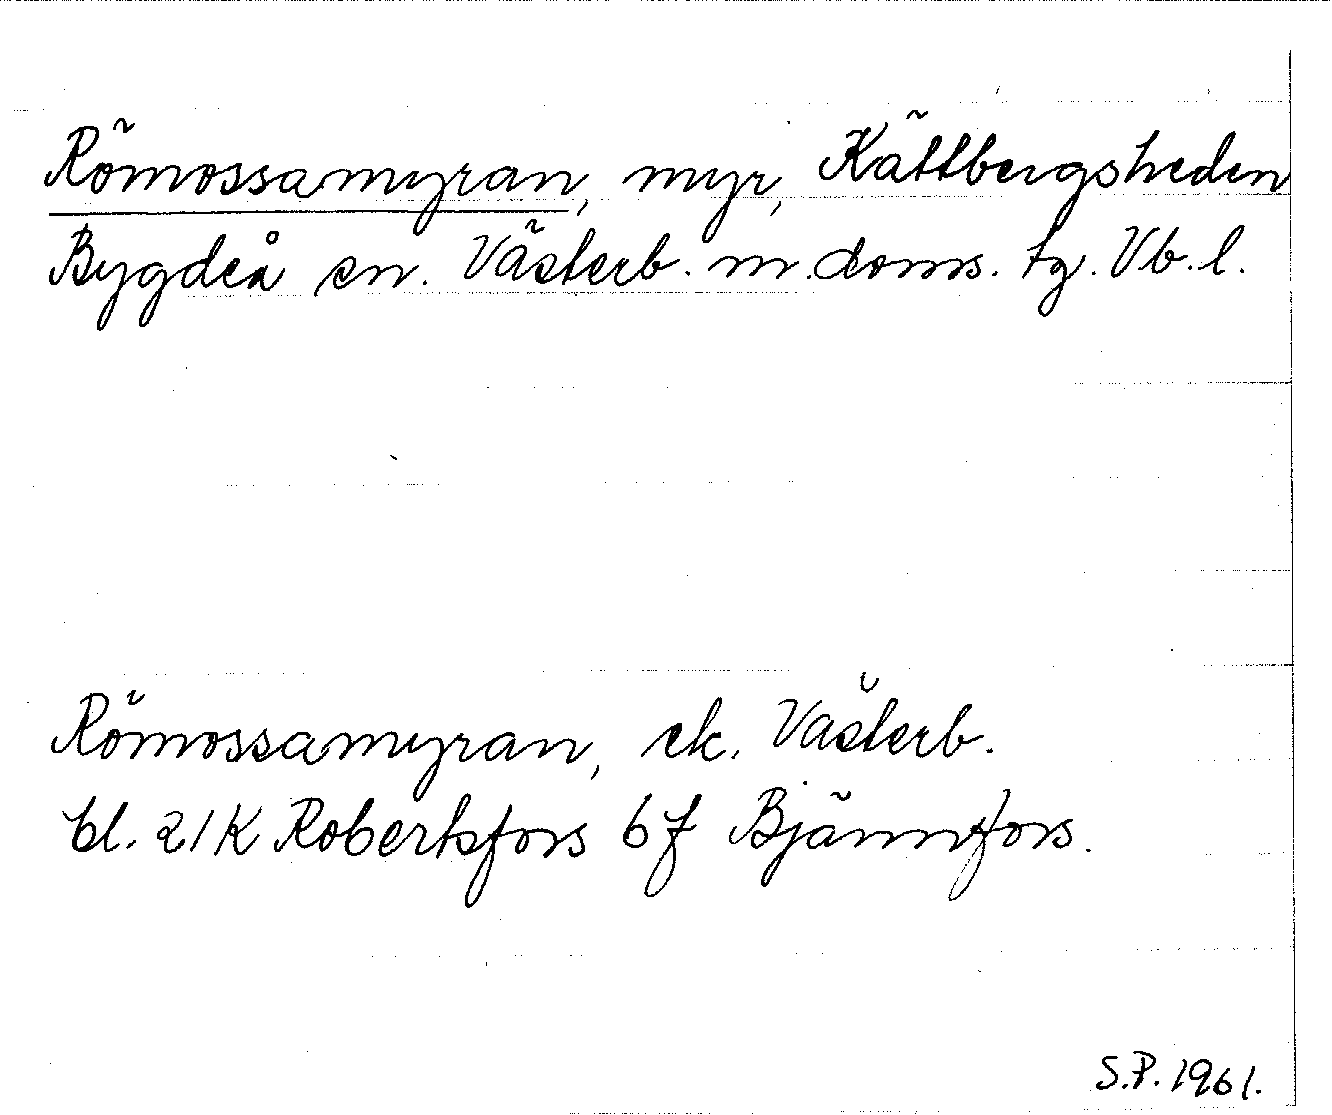 Römossamyran, myr, Kättbergsheden
Bygdeå sn. Västerb. m. doms. tg. Vb. l.
Römossamyran, ek. Västerb.
bl. 21K Robertsfors 6f Bjännfors.
S.P. 1961.